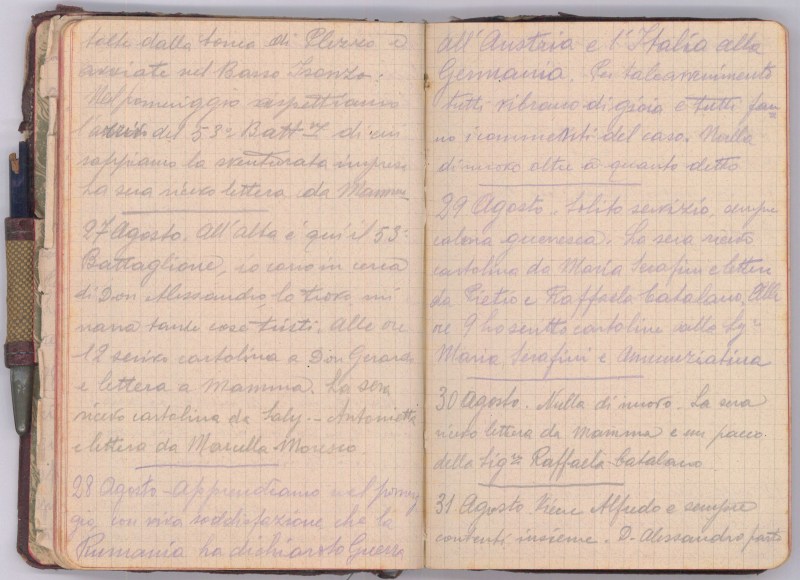 tolte dalla conca di Plezzo e
avviate nel Basso Isonzo.
Nel pomeriggio aspettiamo
l'arrivo del 53º Battne di cui
sappiamo la sventurata impresa
La sera ricevo lettera da Mamma
27 Agosto. All'alba è qui il 53º
Battaglione, io corro in cerca
di Don Alessandro, lo trovo, mi
narra tante cose tristi. Alle ore
12 scrivo cartolina a Don Gerardo
e lettera a Mamma. La sera
ricevo cartolina da Saly - Antonietta
e lettera da Marcella Moresco
28 Agosto - Apprendiamo nel pomerig
gio, con viva soddisfazione che la
Rumania ha dichiarato Guerra
all'Austria e l'Italia alla
Germania. Per tale avvenimento
tutti vibrano di gioia e tutti fan
no i commenti del caso. Nulla
di nuovo oltre a quanto detto
29 Agosto. Solito servizio, sempre
guerresca. La sera ricevo
cartolina da Maria Serafini e lettere
da Pietro e Raffaela Catalano. Alle
ore 9 ho scritto cartoline alle Sigre
Maria Serafini e Annunziatina
30 Agosto. Nulla di nuovo. La sera
ricevo lettera da Mamma e un pacco
della Sigra Raffaela Catalano
31 Agosto Viene Alfredo e sempre
contenti insieme. D. Alessandro parte